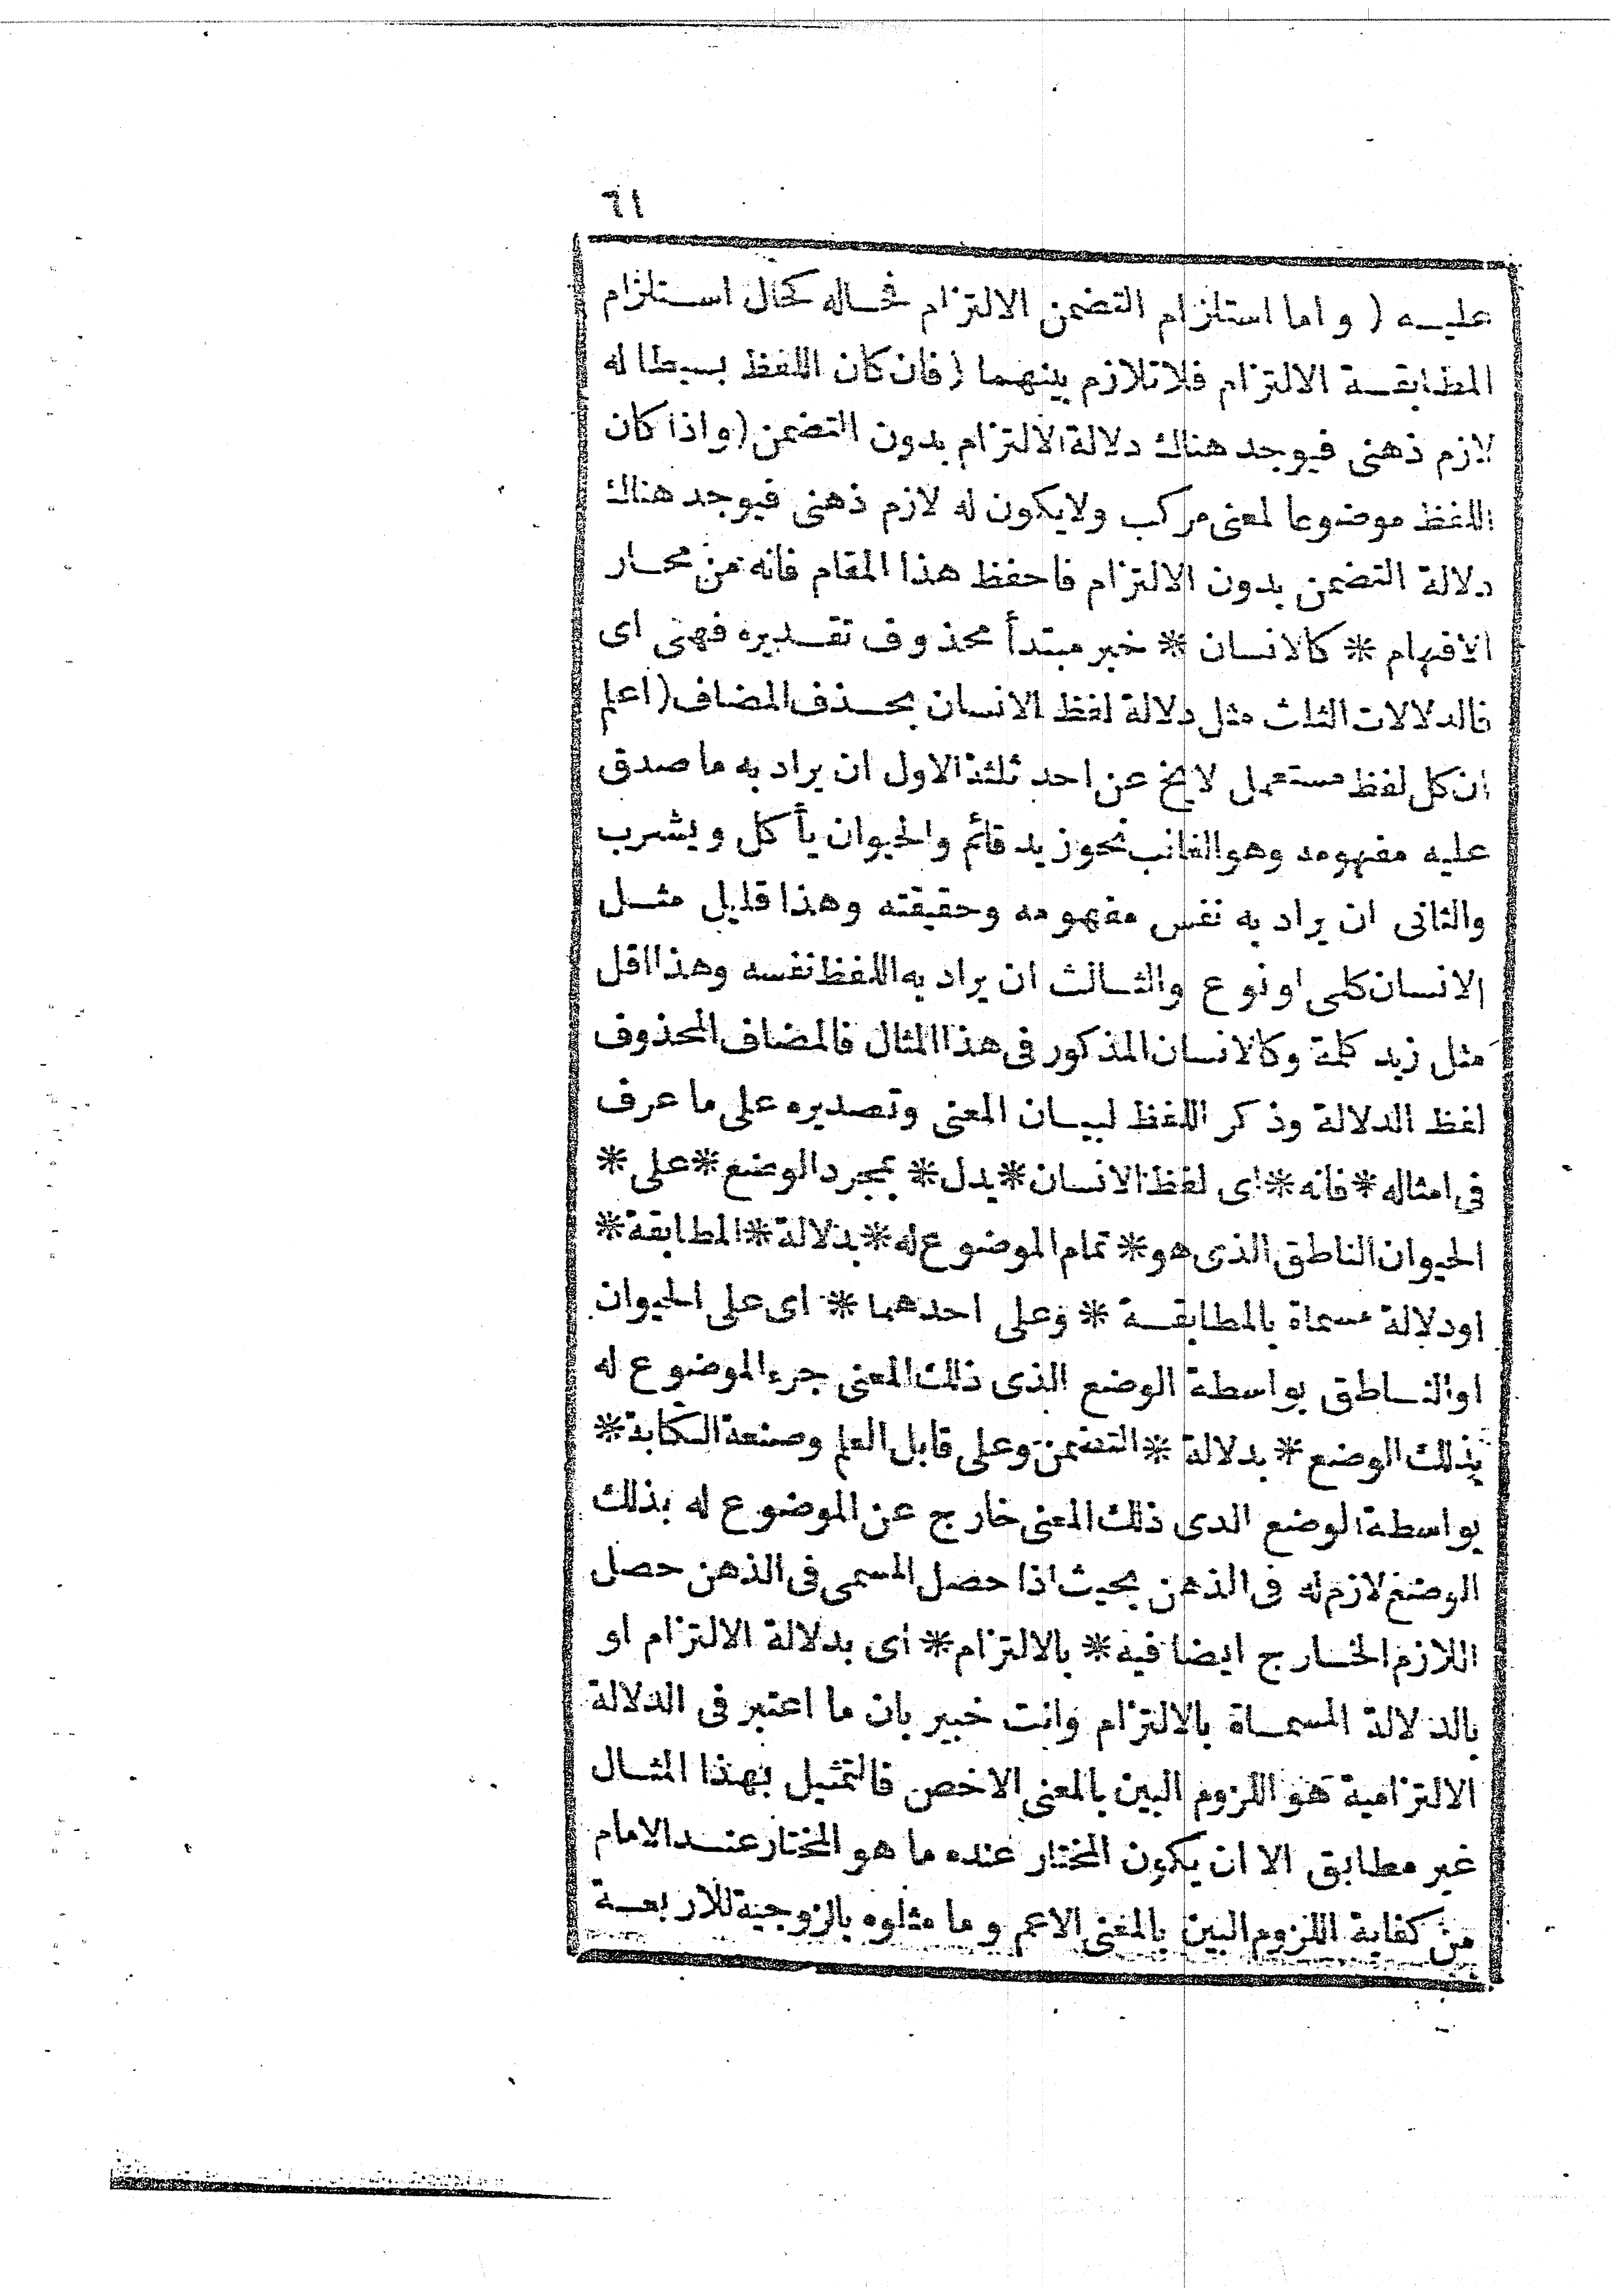 ٦١
عليه ( واما استلزام التضمن الالتزام فحاله كحال استلزام
المطابقة الالتزام فلاتلازم بينهما ( فان كان اللفظ بسيطا له
لازم ذهنى فيوجد هناك دلالة الالتزام بدون التضمن ( واذا كان
اللفظ موضوعا لمعنى مركب ولايكون له لازم ذهنى فيوجد هناك
دلالة التضمن بدون الالتزام فاحفظ هذا المقام فانه من محار
الافهام * كالانسان * خبر مبتدأ محذوف تقديره فهى اى
فالدلالات الثلث مثل دلالة لفظ الانسان بحذف المضاف ( اعلم
ان كل لفظ مستعمل لا يخ عن احد ثلثة الاول ان يراد به ما صدق
عليه مفهومه وهو الغالب نحو زيد قائم والحيوان يأكل ويشرب
والثانى ان يراد به نفس مفهومه وحقيقته وهذا قليل مثل
الانسان كلى او نوع والثالث ان يراد به اللفظ نفسه وهذا اقل
مثل زيد كلمة وكالانسان المذكور فى هذا المثال فالمضاف المحذوف
لفظ الدلالة وذكر اللفظ لبيان المعنى وتصديره على ما عرف
فى امثاله * فانه * اى لفظ الانسان * يدل * بمجرد الوضع * على *
الحيوان الناطق الذى هو * تمام الموضوع له * بدلالة * المطابقة *
او دلالة مسماة بالمطابقة * وعلى احدهما * اى على الحيوان
او الناطق بواسطة الوضع الذى ذلك المعنى جزء الموضوع له
بذلك الوضع * بدلالة * التضمن وعلى قابل العلم وصنعة الكتابة *
بواسطة الوضع الدى ذلك المعنى خارج عن الموضوع له بذلك
الوضع لازم له فى الذهن بحيث اذا حصل المسمى فى الذهن حصل
اللازم الخارج ايضا فيه * بالالتزام * اى بدلالة الالتزام او
بالدلالة المسماة بالالتزام وانت خبير بان ما اعتبر فى الدلالة
الالتزامية هو اللزوم البين بالمعنى الاخص فالتمثيل بهذا المثال
غير مطابق الا ان يكون المختار عنده ما هو المختار عند الامام
من كفاية اللزوم البين بالمعنى الاعم وما مثلوه بالزوجية للاربعة